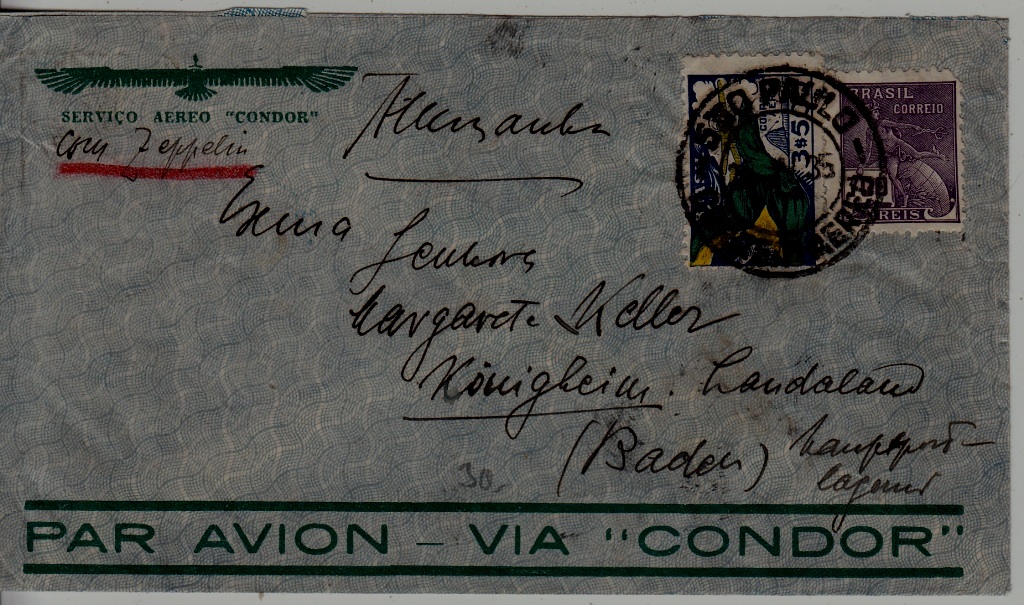 SERVIÇO AEREO "CONDOR"
com Zeppelin
Alemanha
Exma
Senhora
Margarete Keller
Königheim.
(Baden)
hauptpost-
lagernd
30
SÃO PAULO
35
3$5
BRASIL
CORREIO
700
REIS
PAR AVION – VIA "CONDOR"